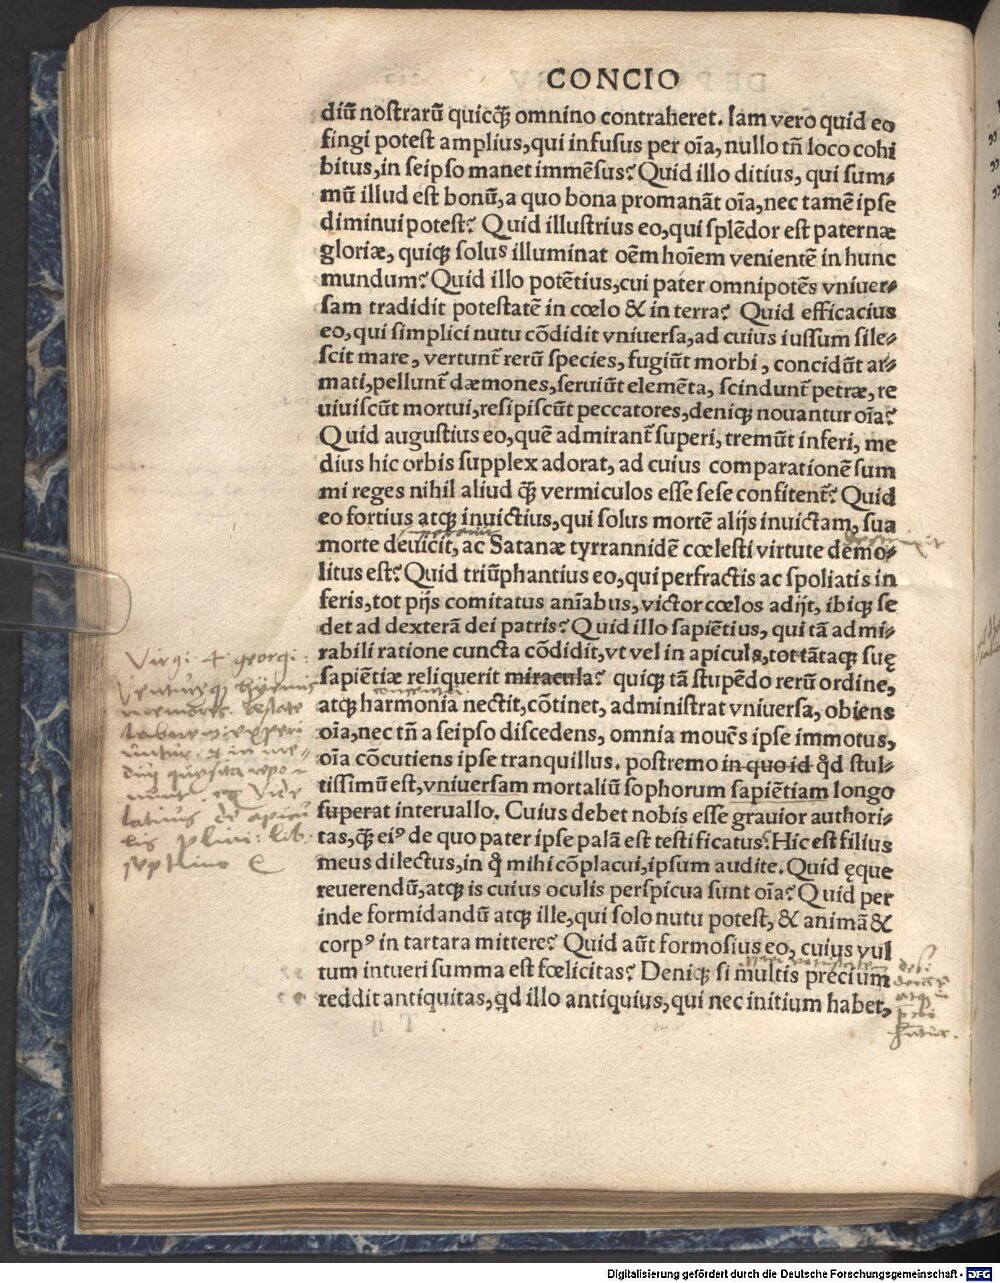 CONCIO
diū nostrarū quicq̄ꝫ omnino contraheret. Iam vero quid eo
fingi potest amplius, qui infusus per oīa, nullo tn̄ loco cohi
bitus, in seipso manet immēsus? Quid illo ditius, qui sum⸗
mū illud est bonū, a quo bona promanāt oīa, nec tamē ipse
diminui potest? Quid illustrius eo, qui splēdor est paternæ
gloriæ, quiqꝫ solus illuminat oēm hoīem venientē in hunc
mundum? Quid illo potētius, cui pater omnipotēs vniuer⸗
sam tradidit potestatē in cœlo & in terra? Quid efficacius
eo, qui simplici nutu cōdidit vniuersa, ad cuius iussum sile⸗
scit mare, vertunt̄ rerū species, fugiūt morbi, concidūt ar⸗
mati, pellunt̄ dæmones, seruiūt elemēta, scindunt̄ petræ, re
uiuiscūt mortui, resipiscūt peccatores, deniqꝫ nouantur oīa?
Quid augustius eo, quē admirant̄ superi, tremūt inferi, me
dius hic orbis supplex adorat, ad cuius comparationē sum
mi reges nihil aliud q̄ꝫ vermiculos esse sese confitent̄? Quid
eo fortius atqꝫ inuictius, qui solus mortē alijs inuictam, sua
morte deuicit, ac Satanæ tyrrannidē cœlesti virtute demo⸗
litus est? Quid triūphantius eo, qui perfractis ac spoliatis in
feris, tot pijs comitatus anīabus, victor cœlos adijt, ibiqꝫ se
det ad dexterā dei patris? Quid illo sapiētius, qui tā admi⸗
rabili ratione cuncta cōdidit, vt vel in apiculs, tot tātaqꝫ suę
sapiētiæ reliquerit miracula? quiqꝫ tā stupēdo rerū ordine,
atqꝫ harmonia nectit, cōtinet, administrat vniuersa, obiens
oīa, nec tn̄ a seipso discedens, omnia mouēs ipse immotus,
oīa cōcutiens ipse tranquillus. postremo in quo id q̊d stul⸗
tissimū est, vniuersam mortaliū sophorum sapiētiam longo
superat interuallo. Cuius debet nobis esse grauior authori⸗
tas, q̄ꝫ eiꝰ de quo pater ipse palā est testificatus? Hic est filius
meus dilectus, in q̊ mihi cōplacui, ipsum audite. Quid ęque
reuerendū, atqꝫ is cuius oculis perspicua sunt oīa? Quid per
inde formidandū atqꝫ ille, qui solo nutu potest, & animā &
corpꝰ in tartara mittere? Quid aūt formosius eo, cuius vul
tum intueri summa est fœlicitas? Deniqꝫ si multis precium
reddit antiquitas, qd illo antiquius, qui nec initium habet,
Virgi 4 georgi:
Venturęqꝫ hyemis
memores æstate
septimo
Digitalisierung gefördert durch die Deutsche Forschungsgemeinschaft - DFG